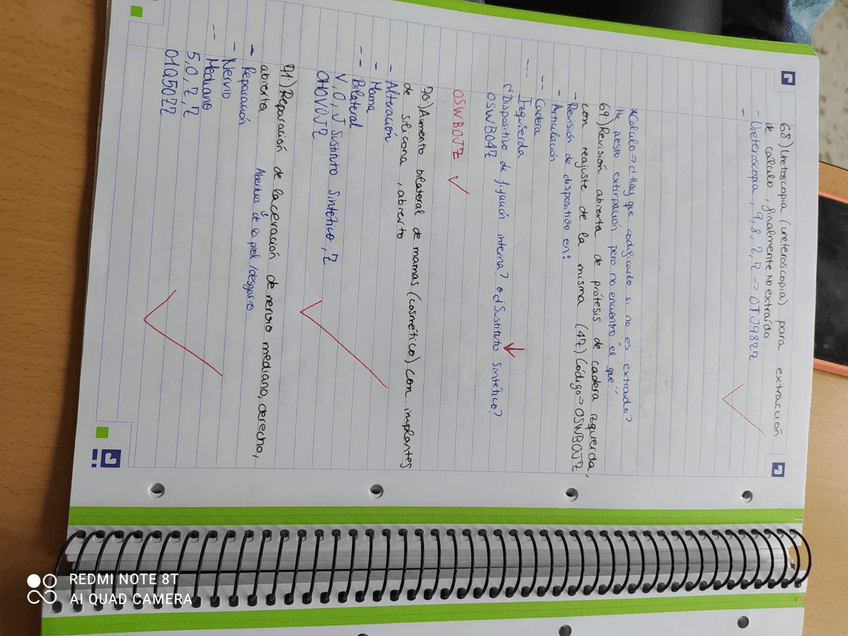 68) Uretoscopia (ureteroscopia) para extracción
de cálculo, finalmente no extraído
- Ureteroscopia, 9, 8, Z, Z → 0TJ98ZZ
-
*Cálculo → ¿Hay que codificarlo si no es extraído?
He puesto extirpación pero no encuentro el qué"
69) Revisión abierta de prótesis de cadera izquierda,
con reajuste de la misma (4Z) Código → 0SWB0JZ
- Revisión de dispositivo en:
- Articulación
-- Cadera
--- Izquierda
¿Dispositivo de fijación interna? o ¿Sustituto sintético?
0SWB04Z
0SWB0JZ ✓
70) Aumento bilateral de mamas (cosmético) con implantes
de silicona, abierto
- Alteración
- Mama
-- Bilateral
V, 0, J Sustituto sintético, Z
0H0V0JZ
71) Reparación de laceración de nervio mediano, derecho,
abierta
Abertura de la piel/desgarro
- Reparación
- Nervio
-- Mediano
5, 0, Z, Z
01Q50ZZ
REDMI NOTE 8T
AI QUAD CAMERA